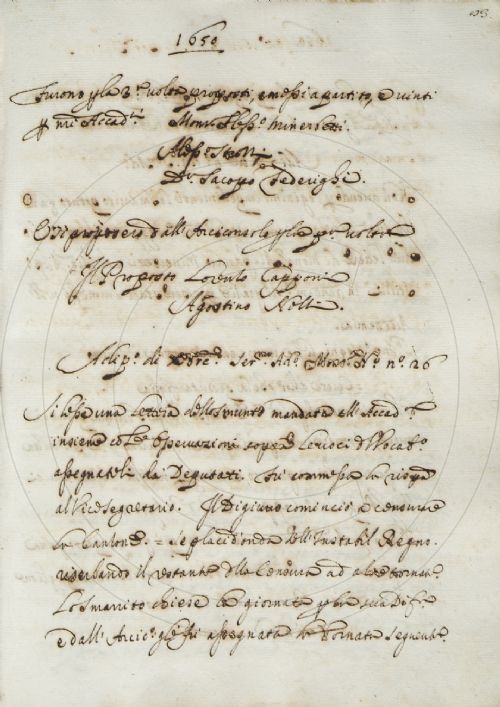 1650
Furono p la 2ª uolta proposti, e messi a partito, e uinti
p nri Accad.ci Mons.r Aless.o Minerbetti.
Aless.o
Dr. Jacopo Federighi.
E si proposero dall'Arciconsolo p la pª uolta
Il Proposto Lorenzo Capponi
Agostino Nelli.
Adi pº di Xbre. Ser.ª Ad.ª More Nº nº. 26
Si lesse una lettera dello Smunto mandata all'Accad.ª
insieme colle Osseruazioni sopra le uoci d Vocab.º
assegnateli da Deputati. Fu commessa la risposta
al Vicesegretario. Il Digiuno cominciò a censurare
la Canzone = Se placid'onda dell'Instabil Regno.
riserbando il restante della Censura ad altra tornata.
Lo Smarrito chiese la giornata p la sua Dif.ª
e dall'Arcic.º gli fu assegnata la Tornata seguente.